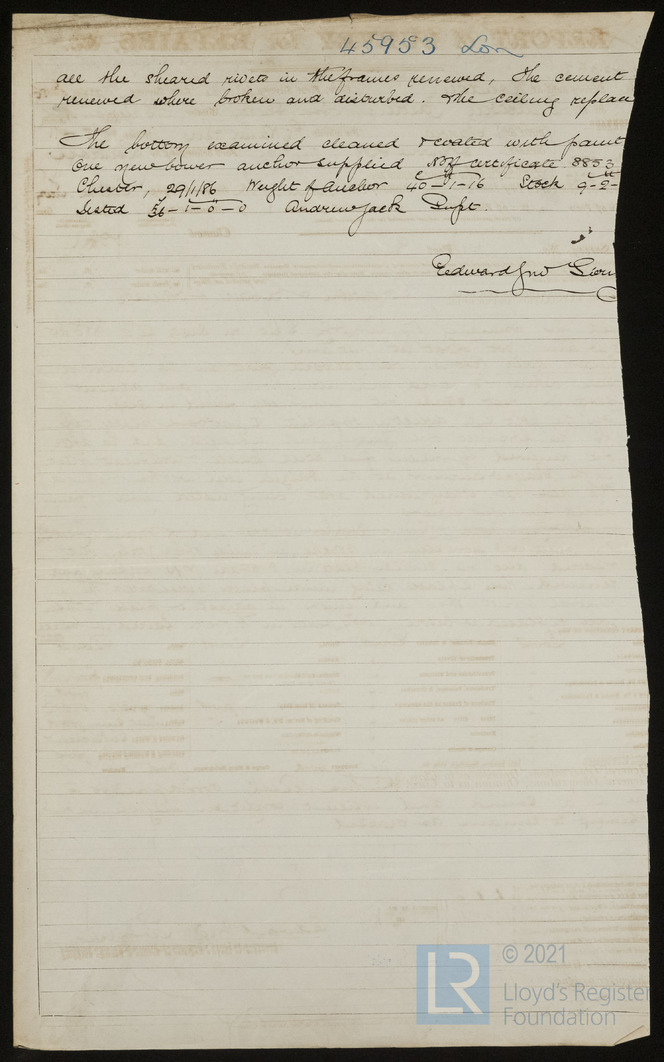 45953 Lon
all the sheared rivets in the frames renewed, the cement
renewed where broken and disturbed. The ceiling replac
The bottom examined cleaned & coated with paint
One new bower anchor supplied No of certificate 8853
Chester, 29/1/86 Weight of Anchor 40-1-16 Stock 9-2-
Tested 36-1-0-0 Andrew Jack Supt.
Edward Jno
© 2021
LR
Lloyd's Register
Foundation